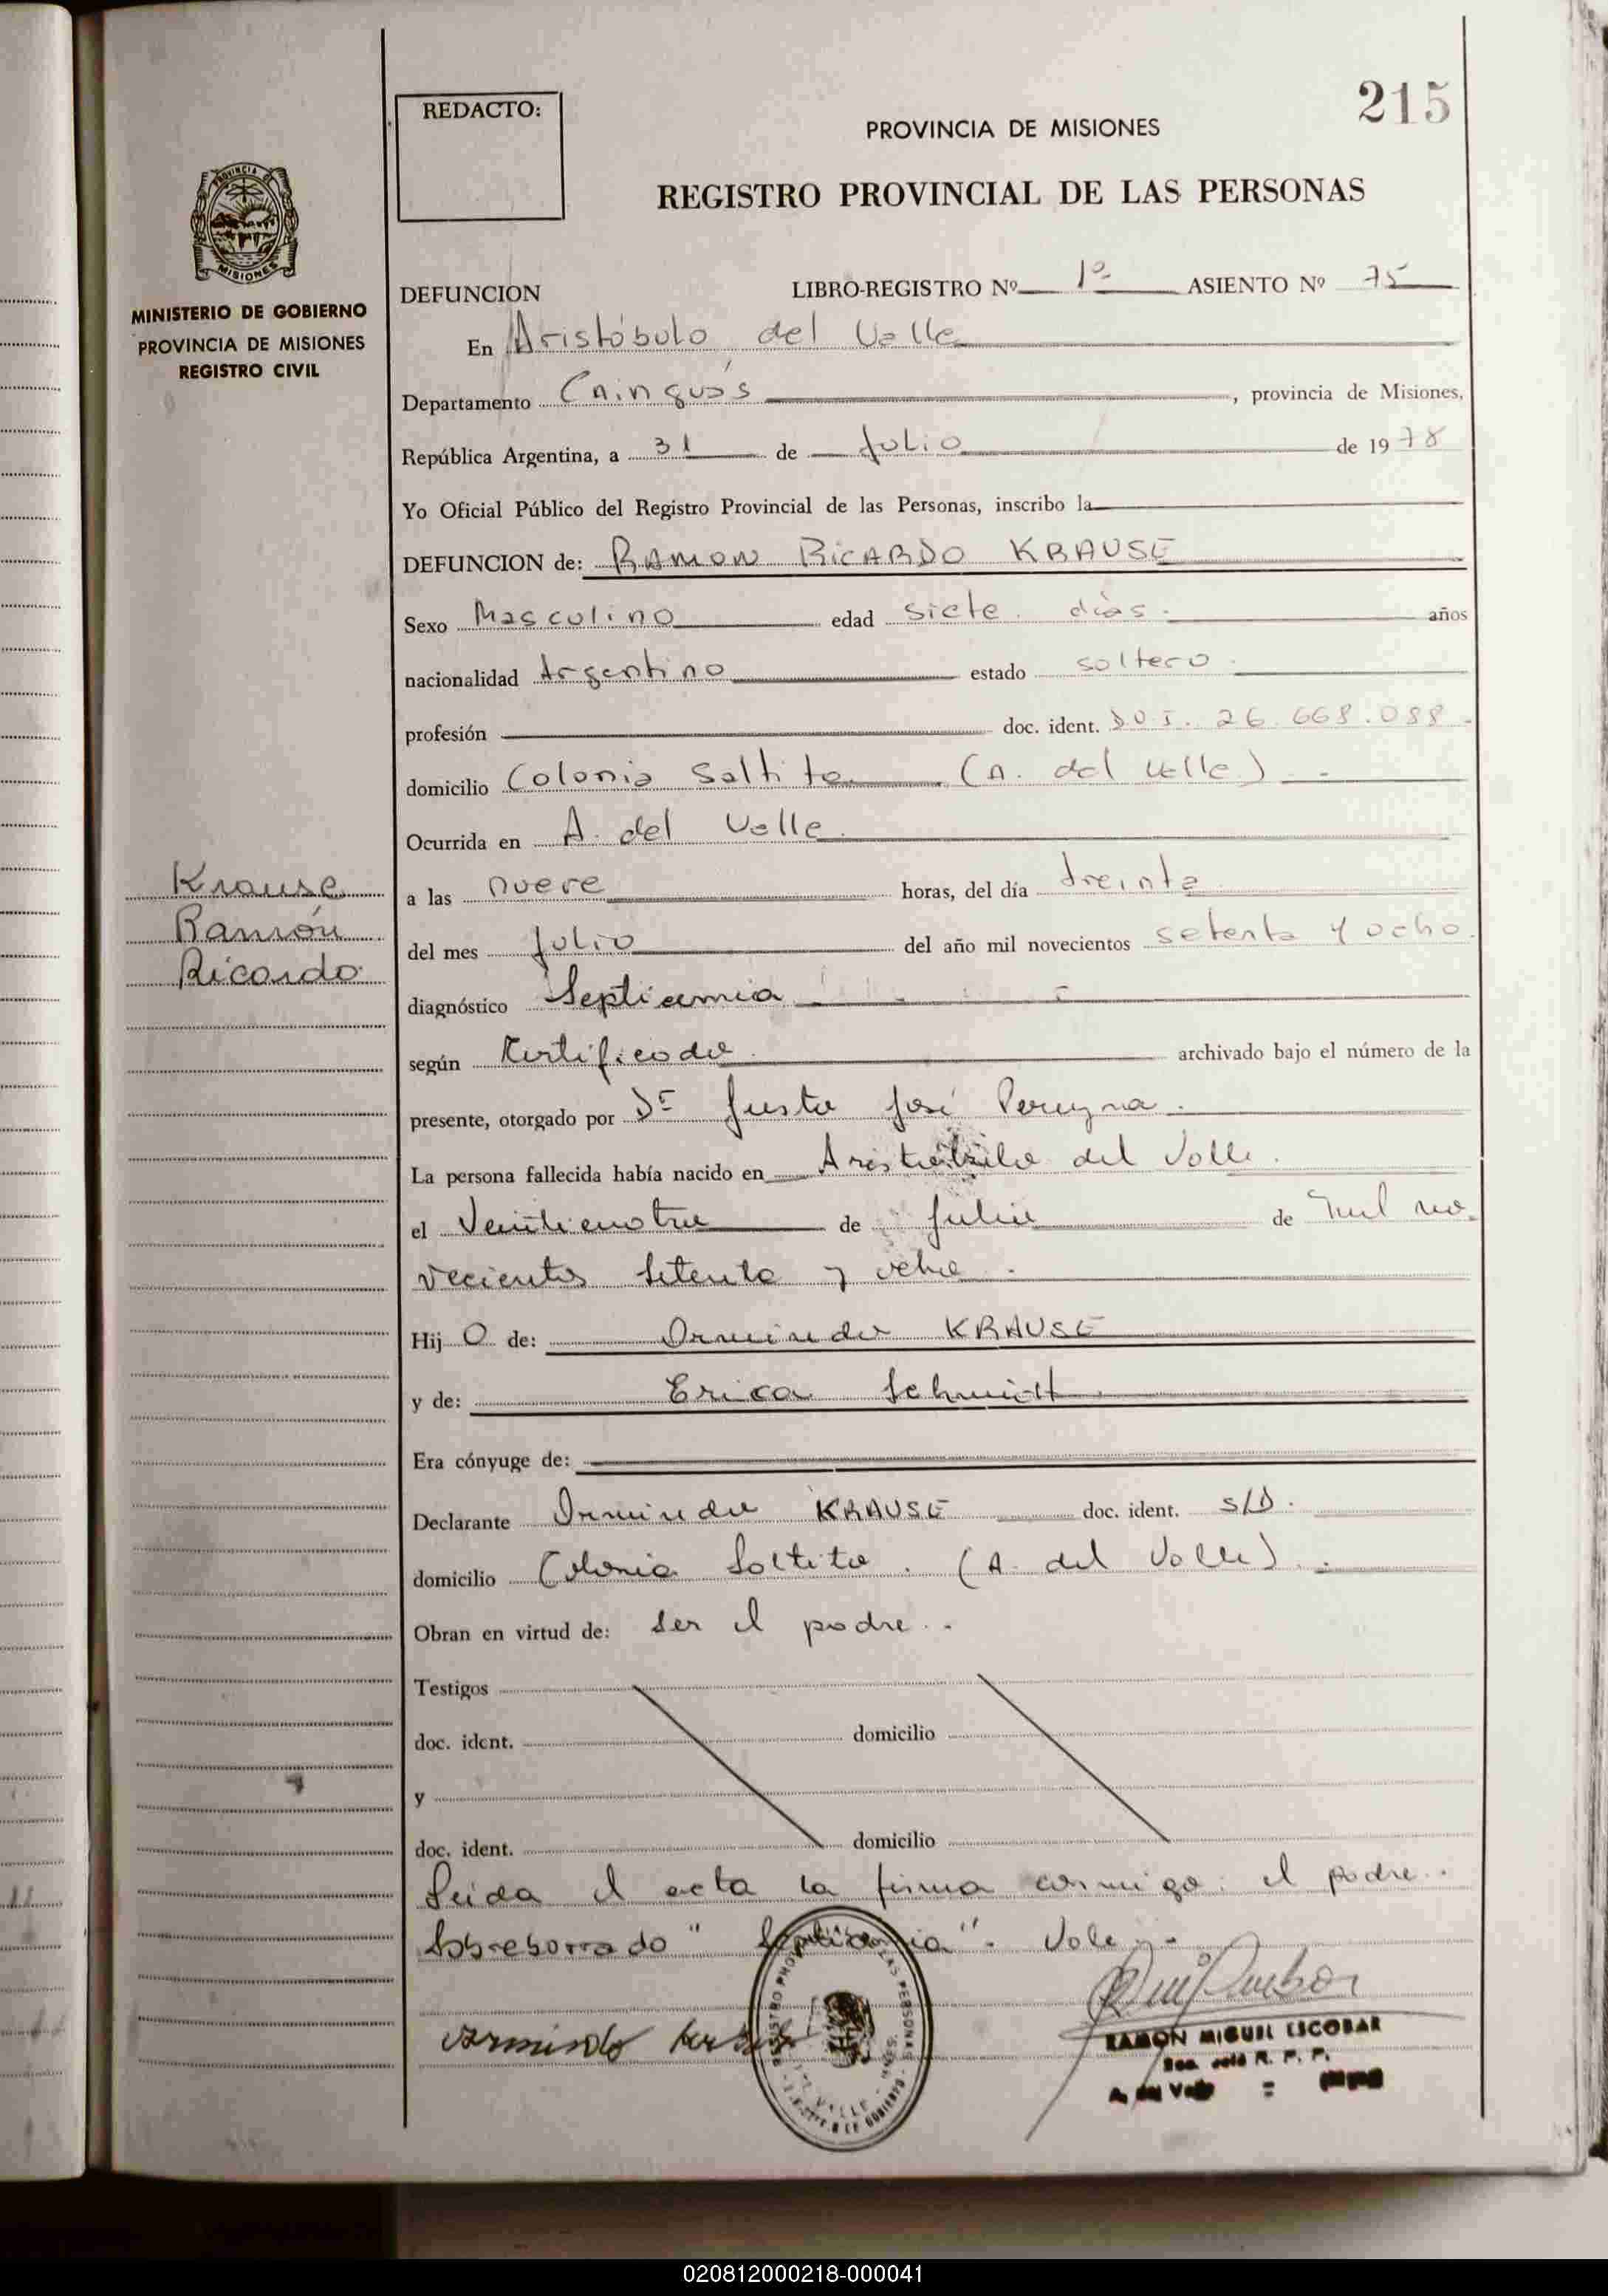 215
REDACTO:
PROVINCIA DE MISIONES
REGISTRO PROVINCIAL DE LAS PERSONAS
PROVINCIA DE
MISIONES
MINISTERIO DE GOBIERNO
PROVINCIA DE MISIONES
REGISTRO CIVIL
DEFUNCION LIBRO-REGISTRO Nº 1º ASIENTO Nº 75
En Aristóbulo del Valle
Departamento Cainguás, provincia de Misiones,
República Argentina, a 31 de Julio de 1978
Yo Oficial Público del Registro Provincial de las Personas, inscribo la
DEFUNCION de: RAMON RICARDO KRAUSE
Sexo Masculino edad siete días. años
nacionalidad Argentino estado soltero
profesión doc. ident. D.U.I. 26.668.088
domicilio Colonia Saltito (A. del Valle)
Ocurrida en A. del Valle
Krause
Ramón
Ricardo
a las nueve horas, del día treinta
del mes Julio del año mil novecientos setenta y ocho.
diagnóstico Septicemia
según Certificado archivado bajo el número de la
presente, otorgado por Dr Justo José
La persona fallecida había nacido en Aristóbulo del Valle.
el Veinticuatro de Julio de mil no-
vecientos setenta y ocho.
Hijo de: Ormindo KRAUSE
y de: Erica Schmidt
Era cónyuge de:
Declarante Ormindo KRAUSE doc. ident. S/D.
domicilio Colonia Saltito. (A. del Valle).
Obran en virtud de: ser el padre.
Testigos
doc. ident. domicilio
y
doc. ident. domicilio
Leida el acta la firma conmigo: el padre.
Sobreborrado "Septicemia". Vale.
RAMON MIGUEL ESCOBAR
R. P. P.
A. del Valle
020812000218-000041